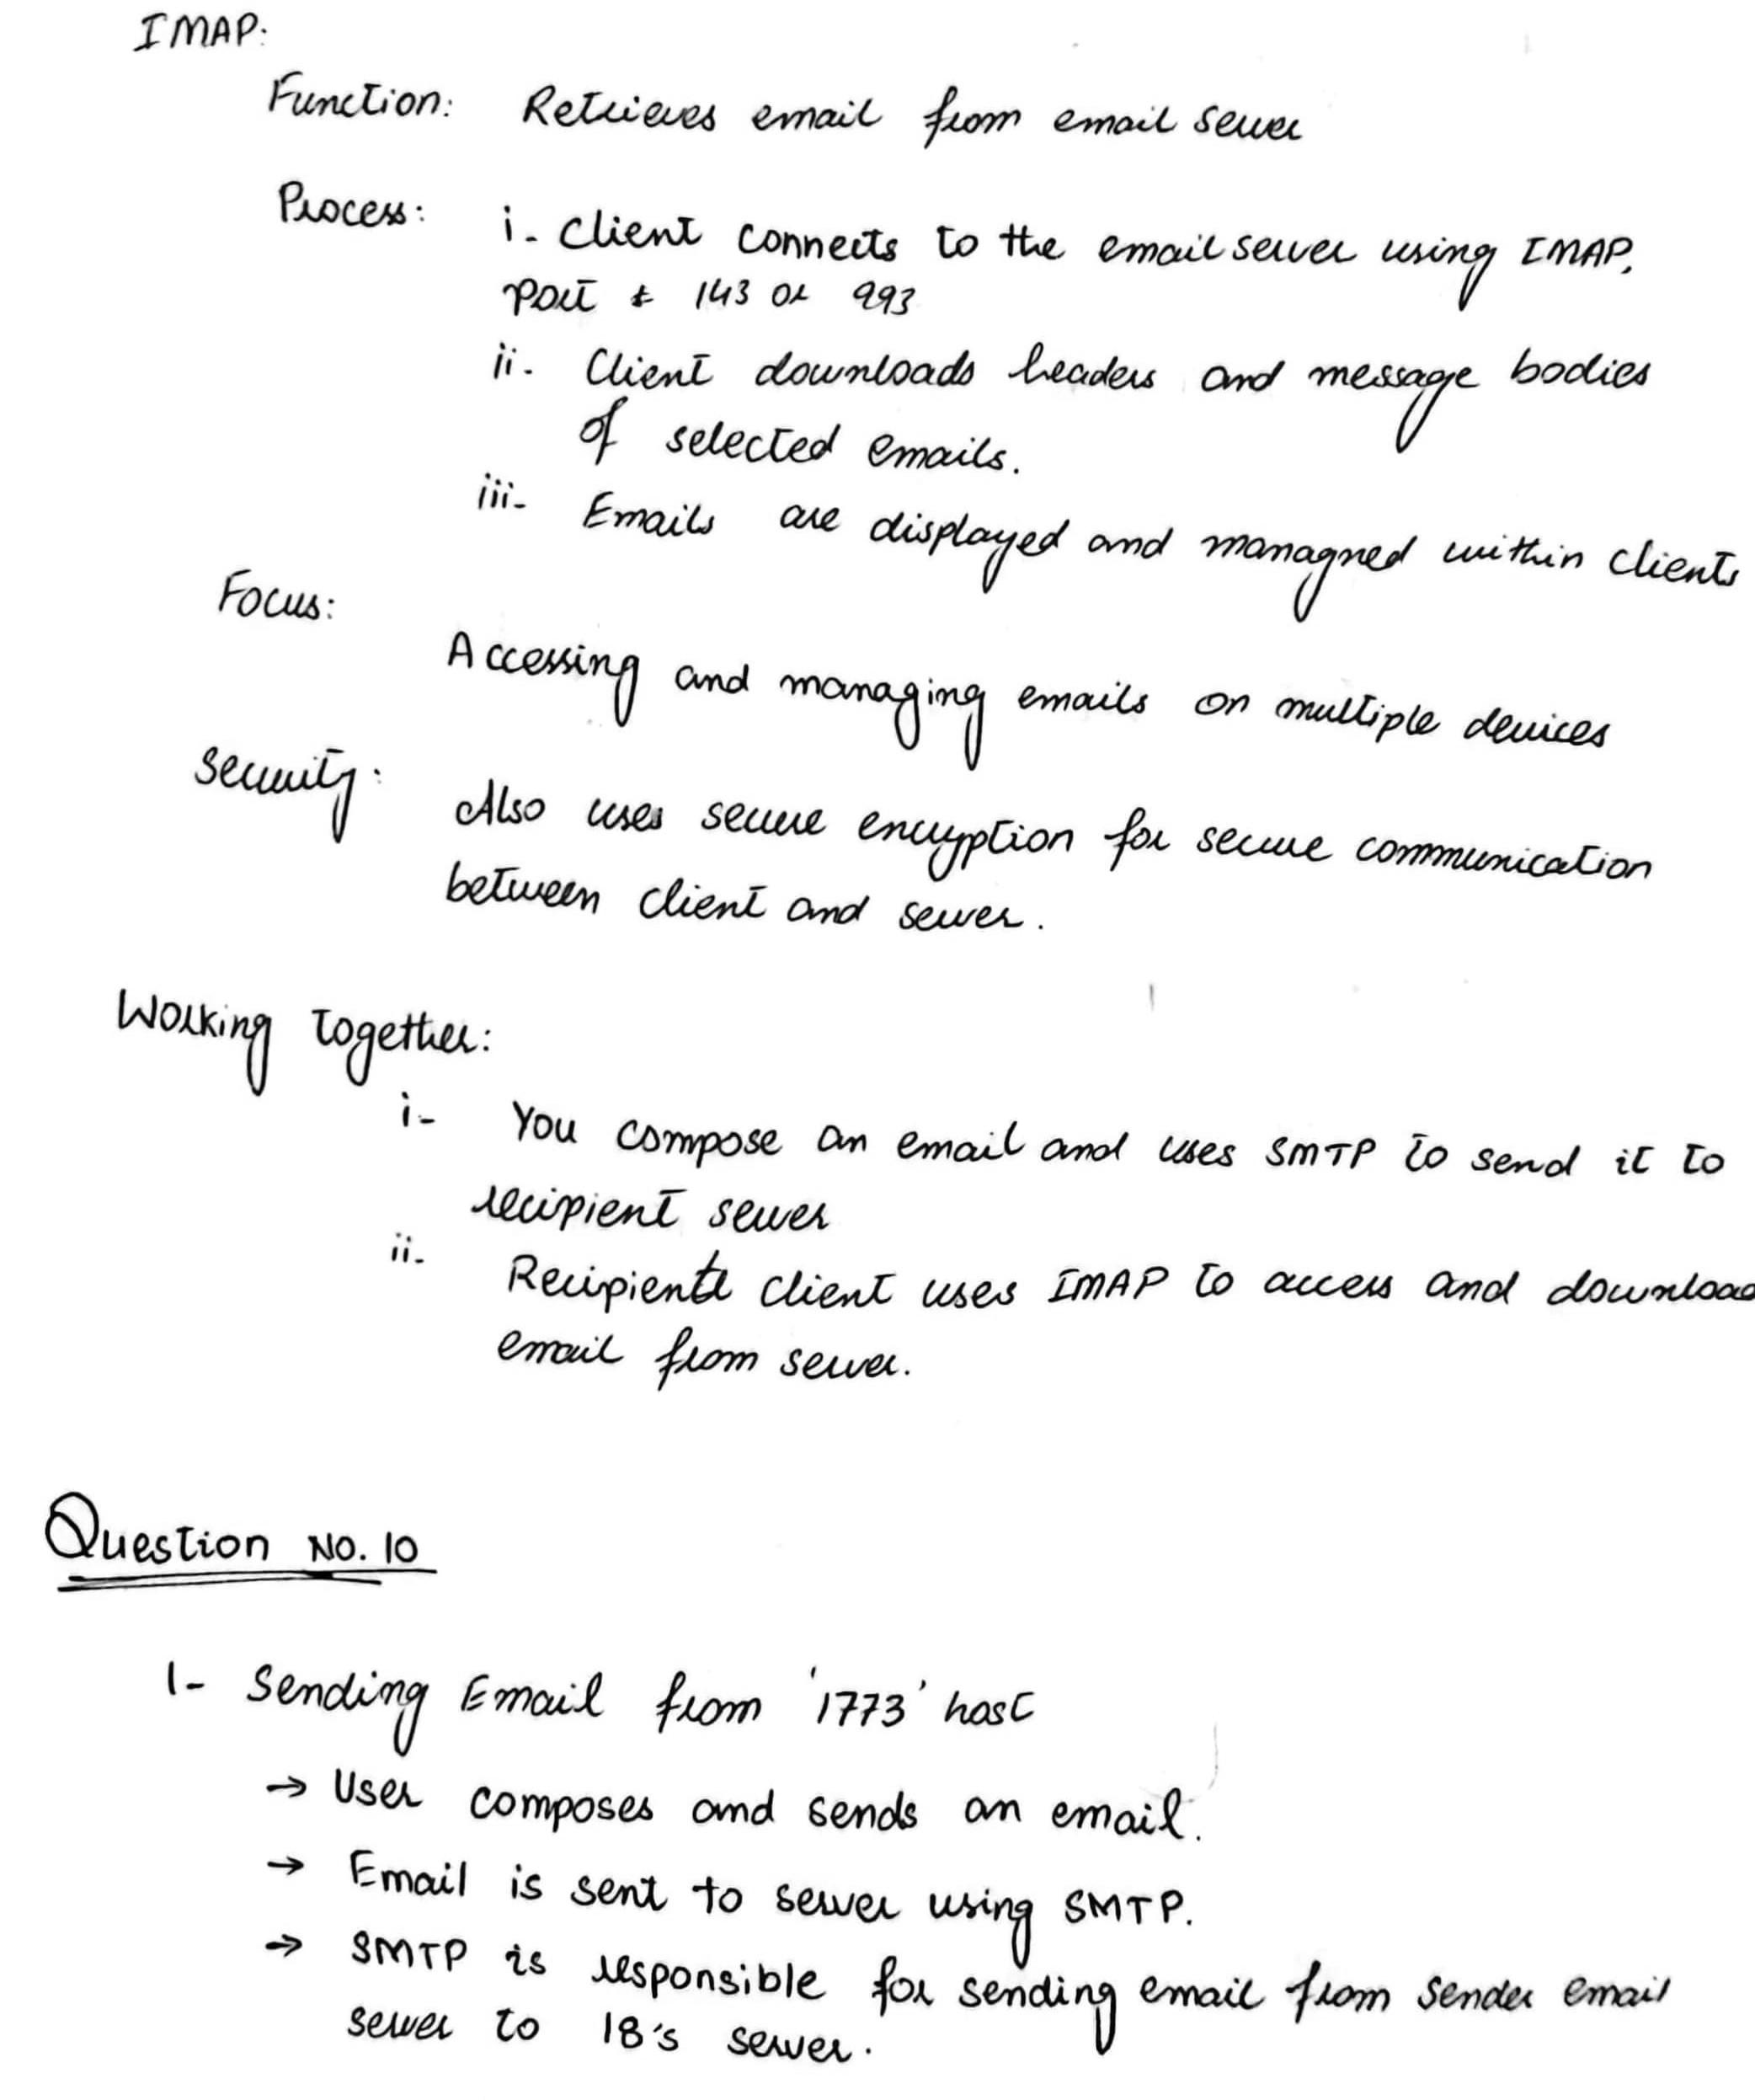 IMAP:
Function: Retrieves email from email server
Process: i- Client connects to the email server using IMAP.
port 143 or 993
ii- Client downloads headers and message bodies
of selected emails.
iii- Emails are displayed and managned within clients
Focus:
Accessing and managing emails on multiple devices
Security:
Also uses secure encryption for secure communication
between client and server.
Working together:
i- You compose an email and uses SMTP to send it to
recipient server
ii- Recipient client uses IMAP to access and download
email from server.
Question NO. 10
1- Sending Email from '1773' host
→ User composes and sends an email.
→ Email is sent to server using SMTP.
→ SMTP is responsible for sending email from sender email
server to 18's server.